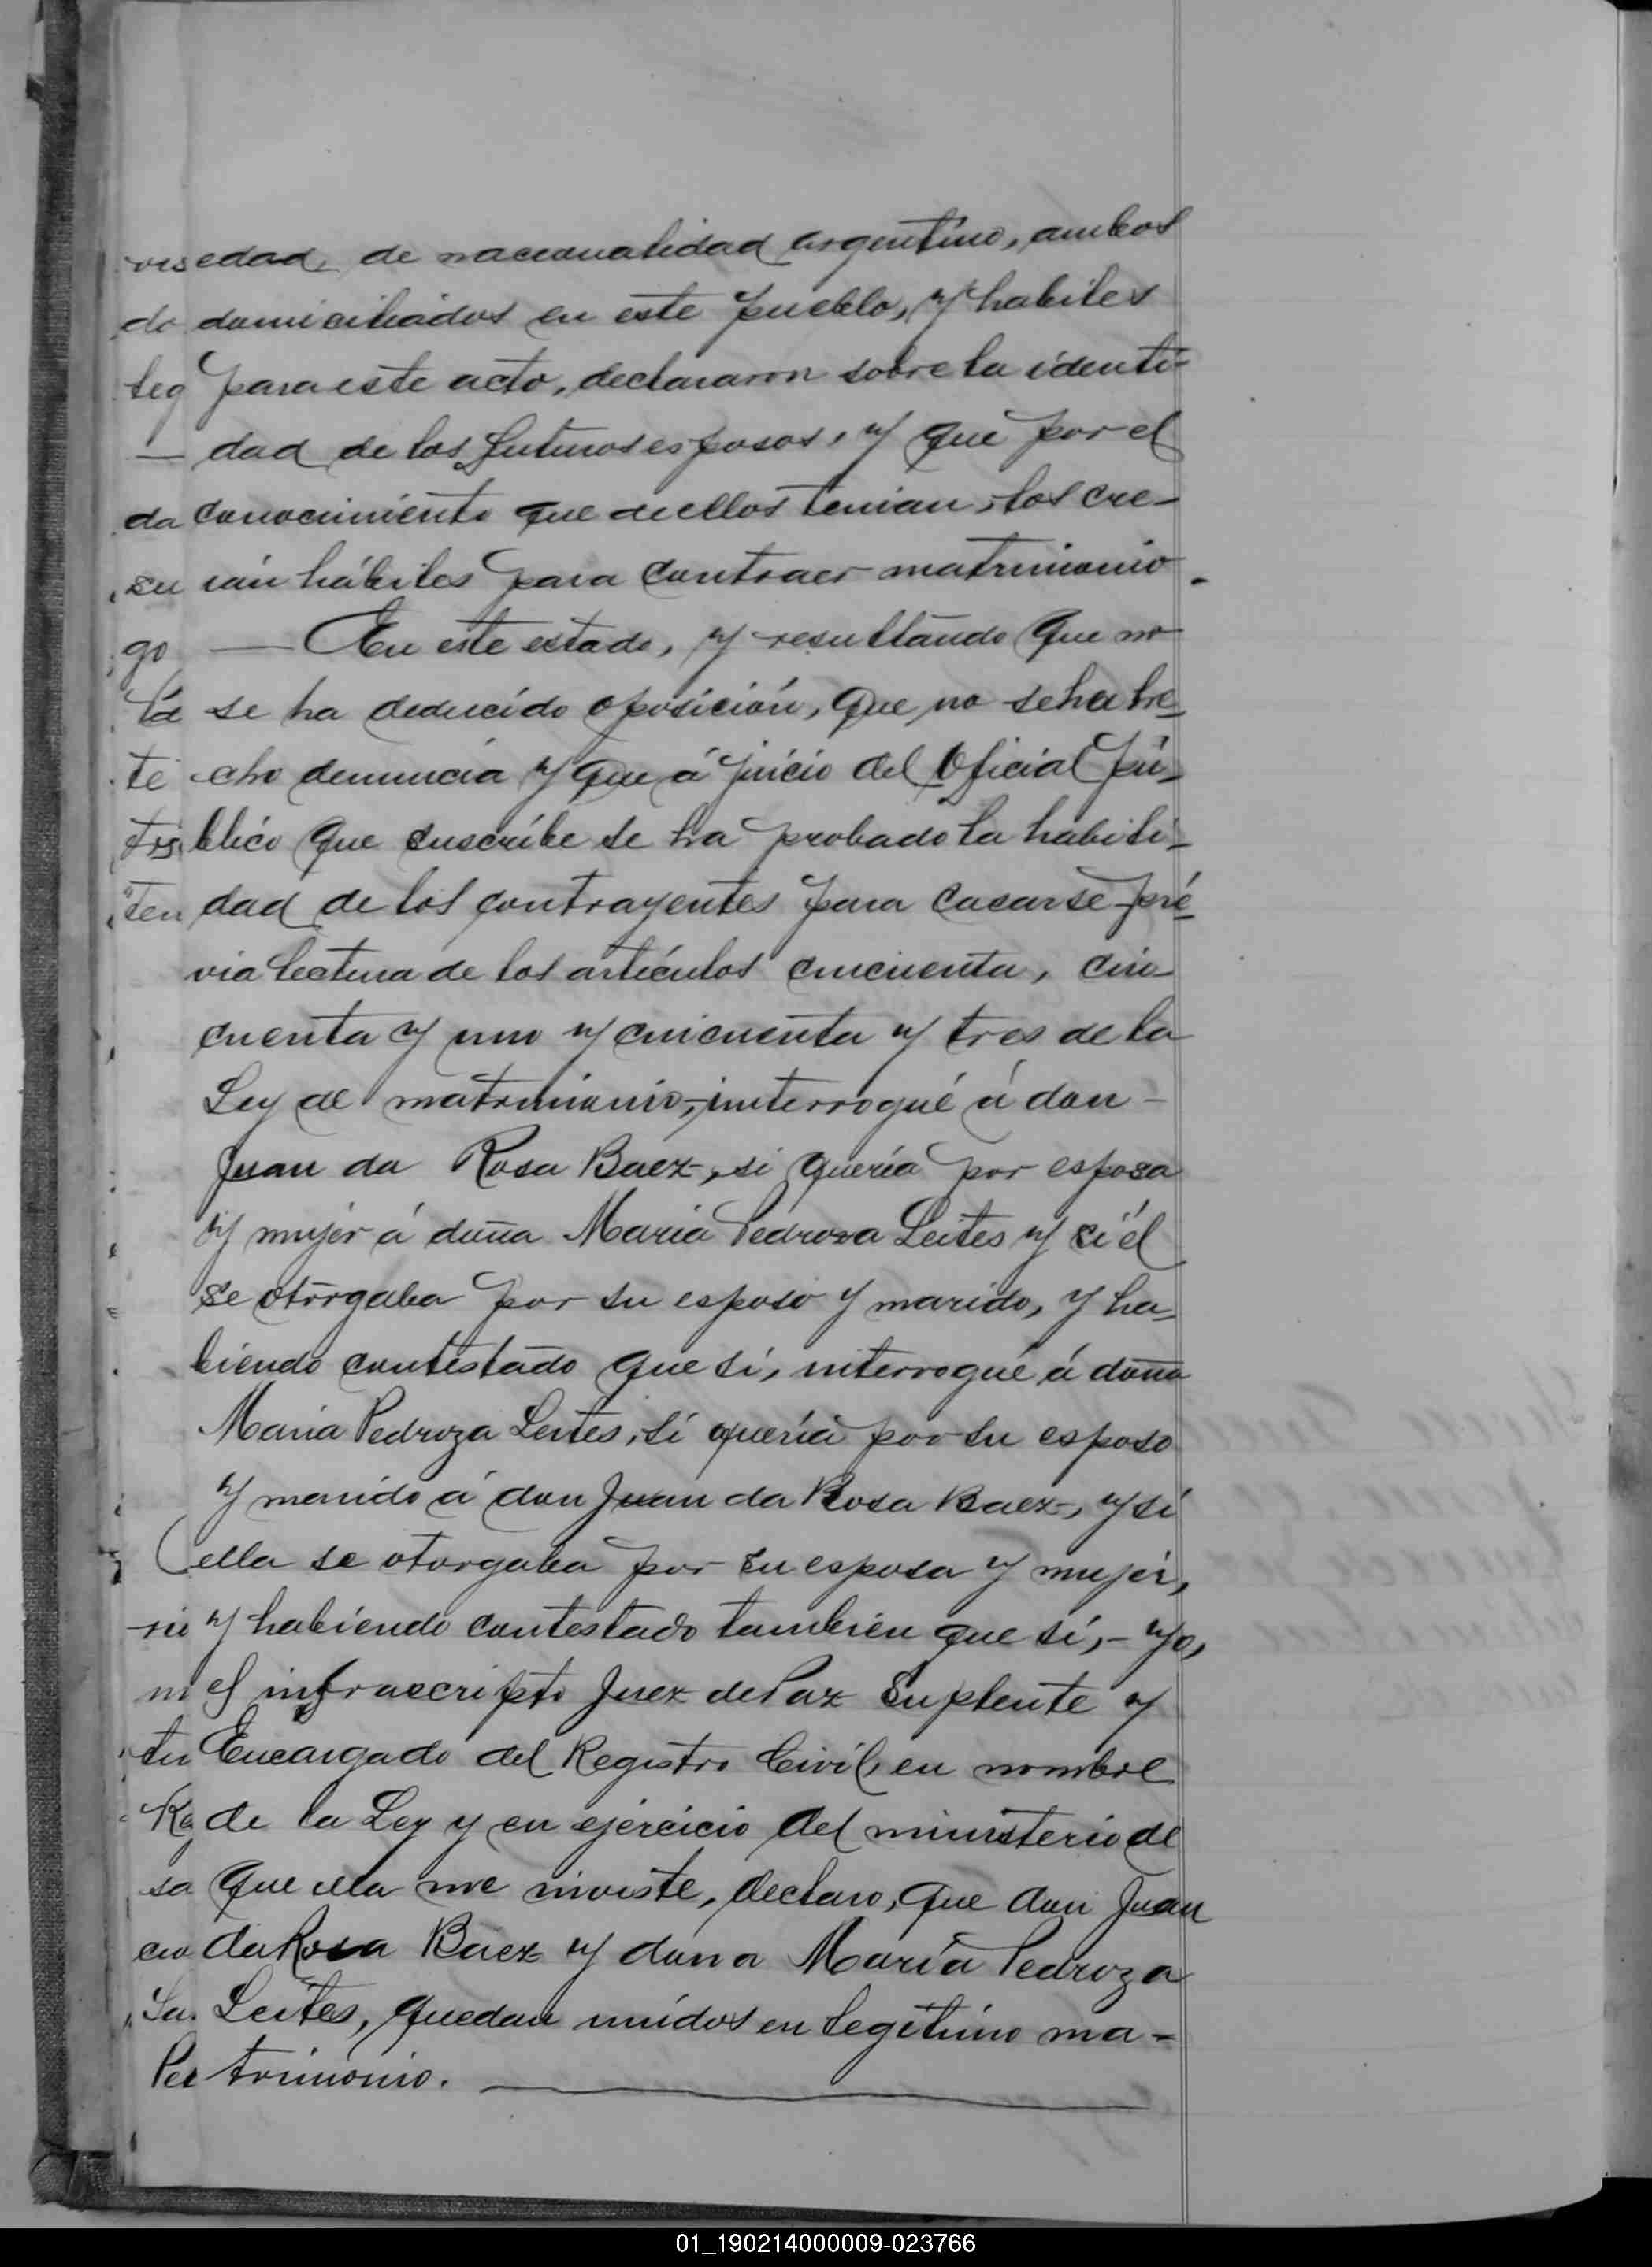 edad, de nacionalidad argentino, ambos
domiciliados en este pueblo, y habiles
para este acto, declararon sobre la identi-
dad de los futuros esposos, y que por el
conocimiento que de ellos tenian, los cre-
ian hábiles para contraer matrimonio.
— En este estado, y resultando que no
se ha deducido oposición, que no se ha he-
cho denuncia y que á juicio del Oficial Pú-
blico que suscribe se ha probado la habili-
dad de los contrayentes para casarse, pré-
via lectura de los artículos cincuenta, cin-
cuenta y uno y cincuenta y tres de la
Ley de matrimonio, interrogué á don
Juan da Rosa Baez, si quería por esposa
y mujer á doña Maria Pedroza Leites y si él
se otorgaba por su esposo y marido, y ha-
biendo contestado que sí, interrogué á doña
Maria Pedroza Leites, si quería por su esposo
y marido á don Juan da Rosa Baez, y si
ella se otorgaba por su esposa y mujer,
y habiendo contestado tambien que sí, - yo,
el infrascripto Juez de Paz Suplente y
Encargado del Registro Civil, en nombre
de la Ley y en ejercicio del ministerio de
que ella me inviste, declaro, que don Juan
da Rosa Baez y dona María Pedroza
Leites, quedan unidos en legítimo ma-
trimonio.
01_190214000009-023766